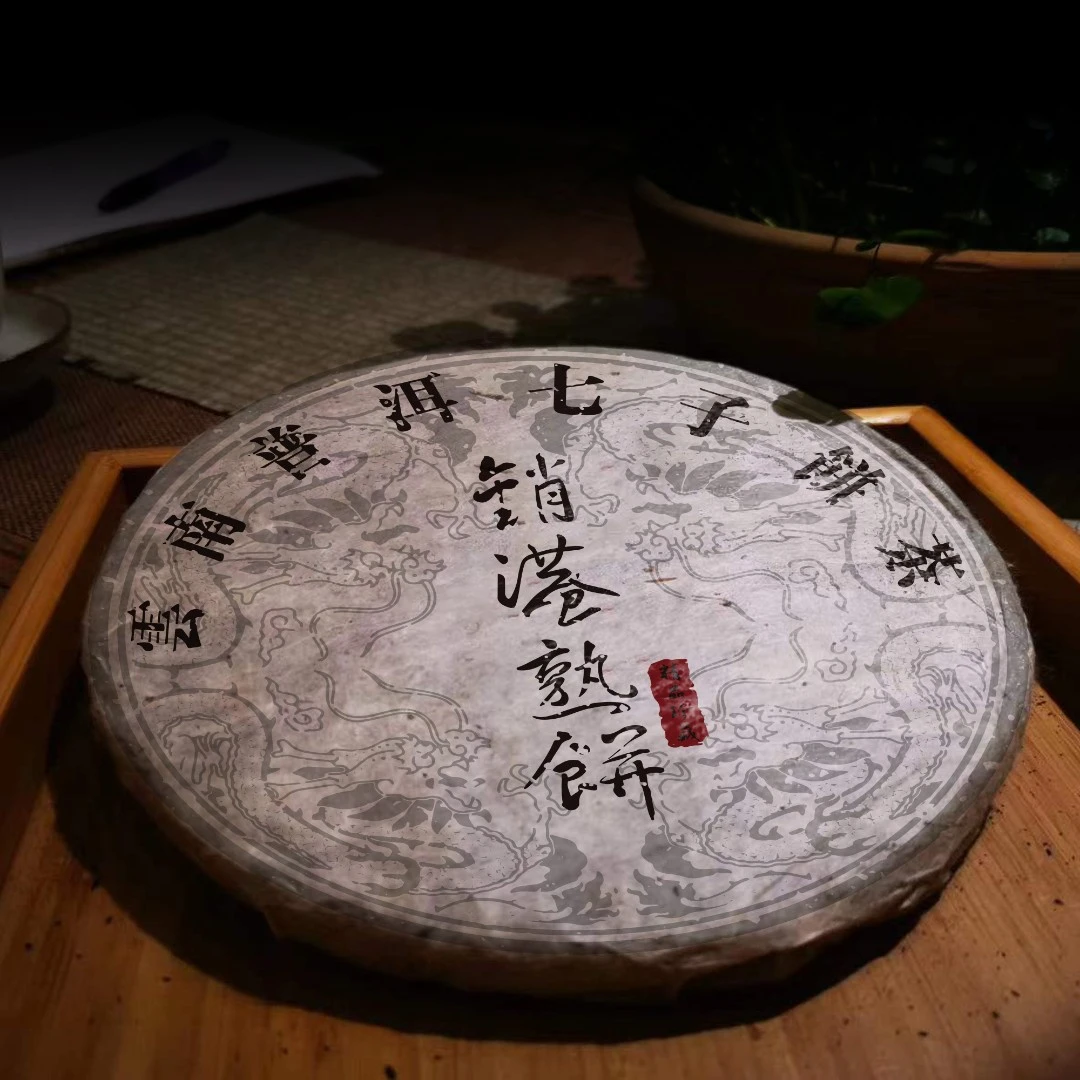 雲南普洱七子餅茶
銷港熟餅